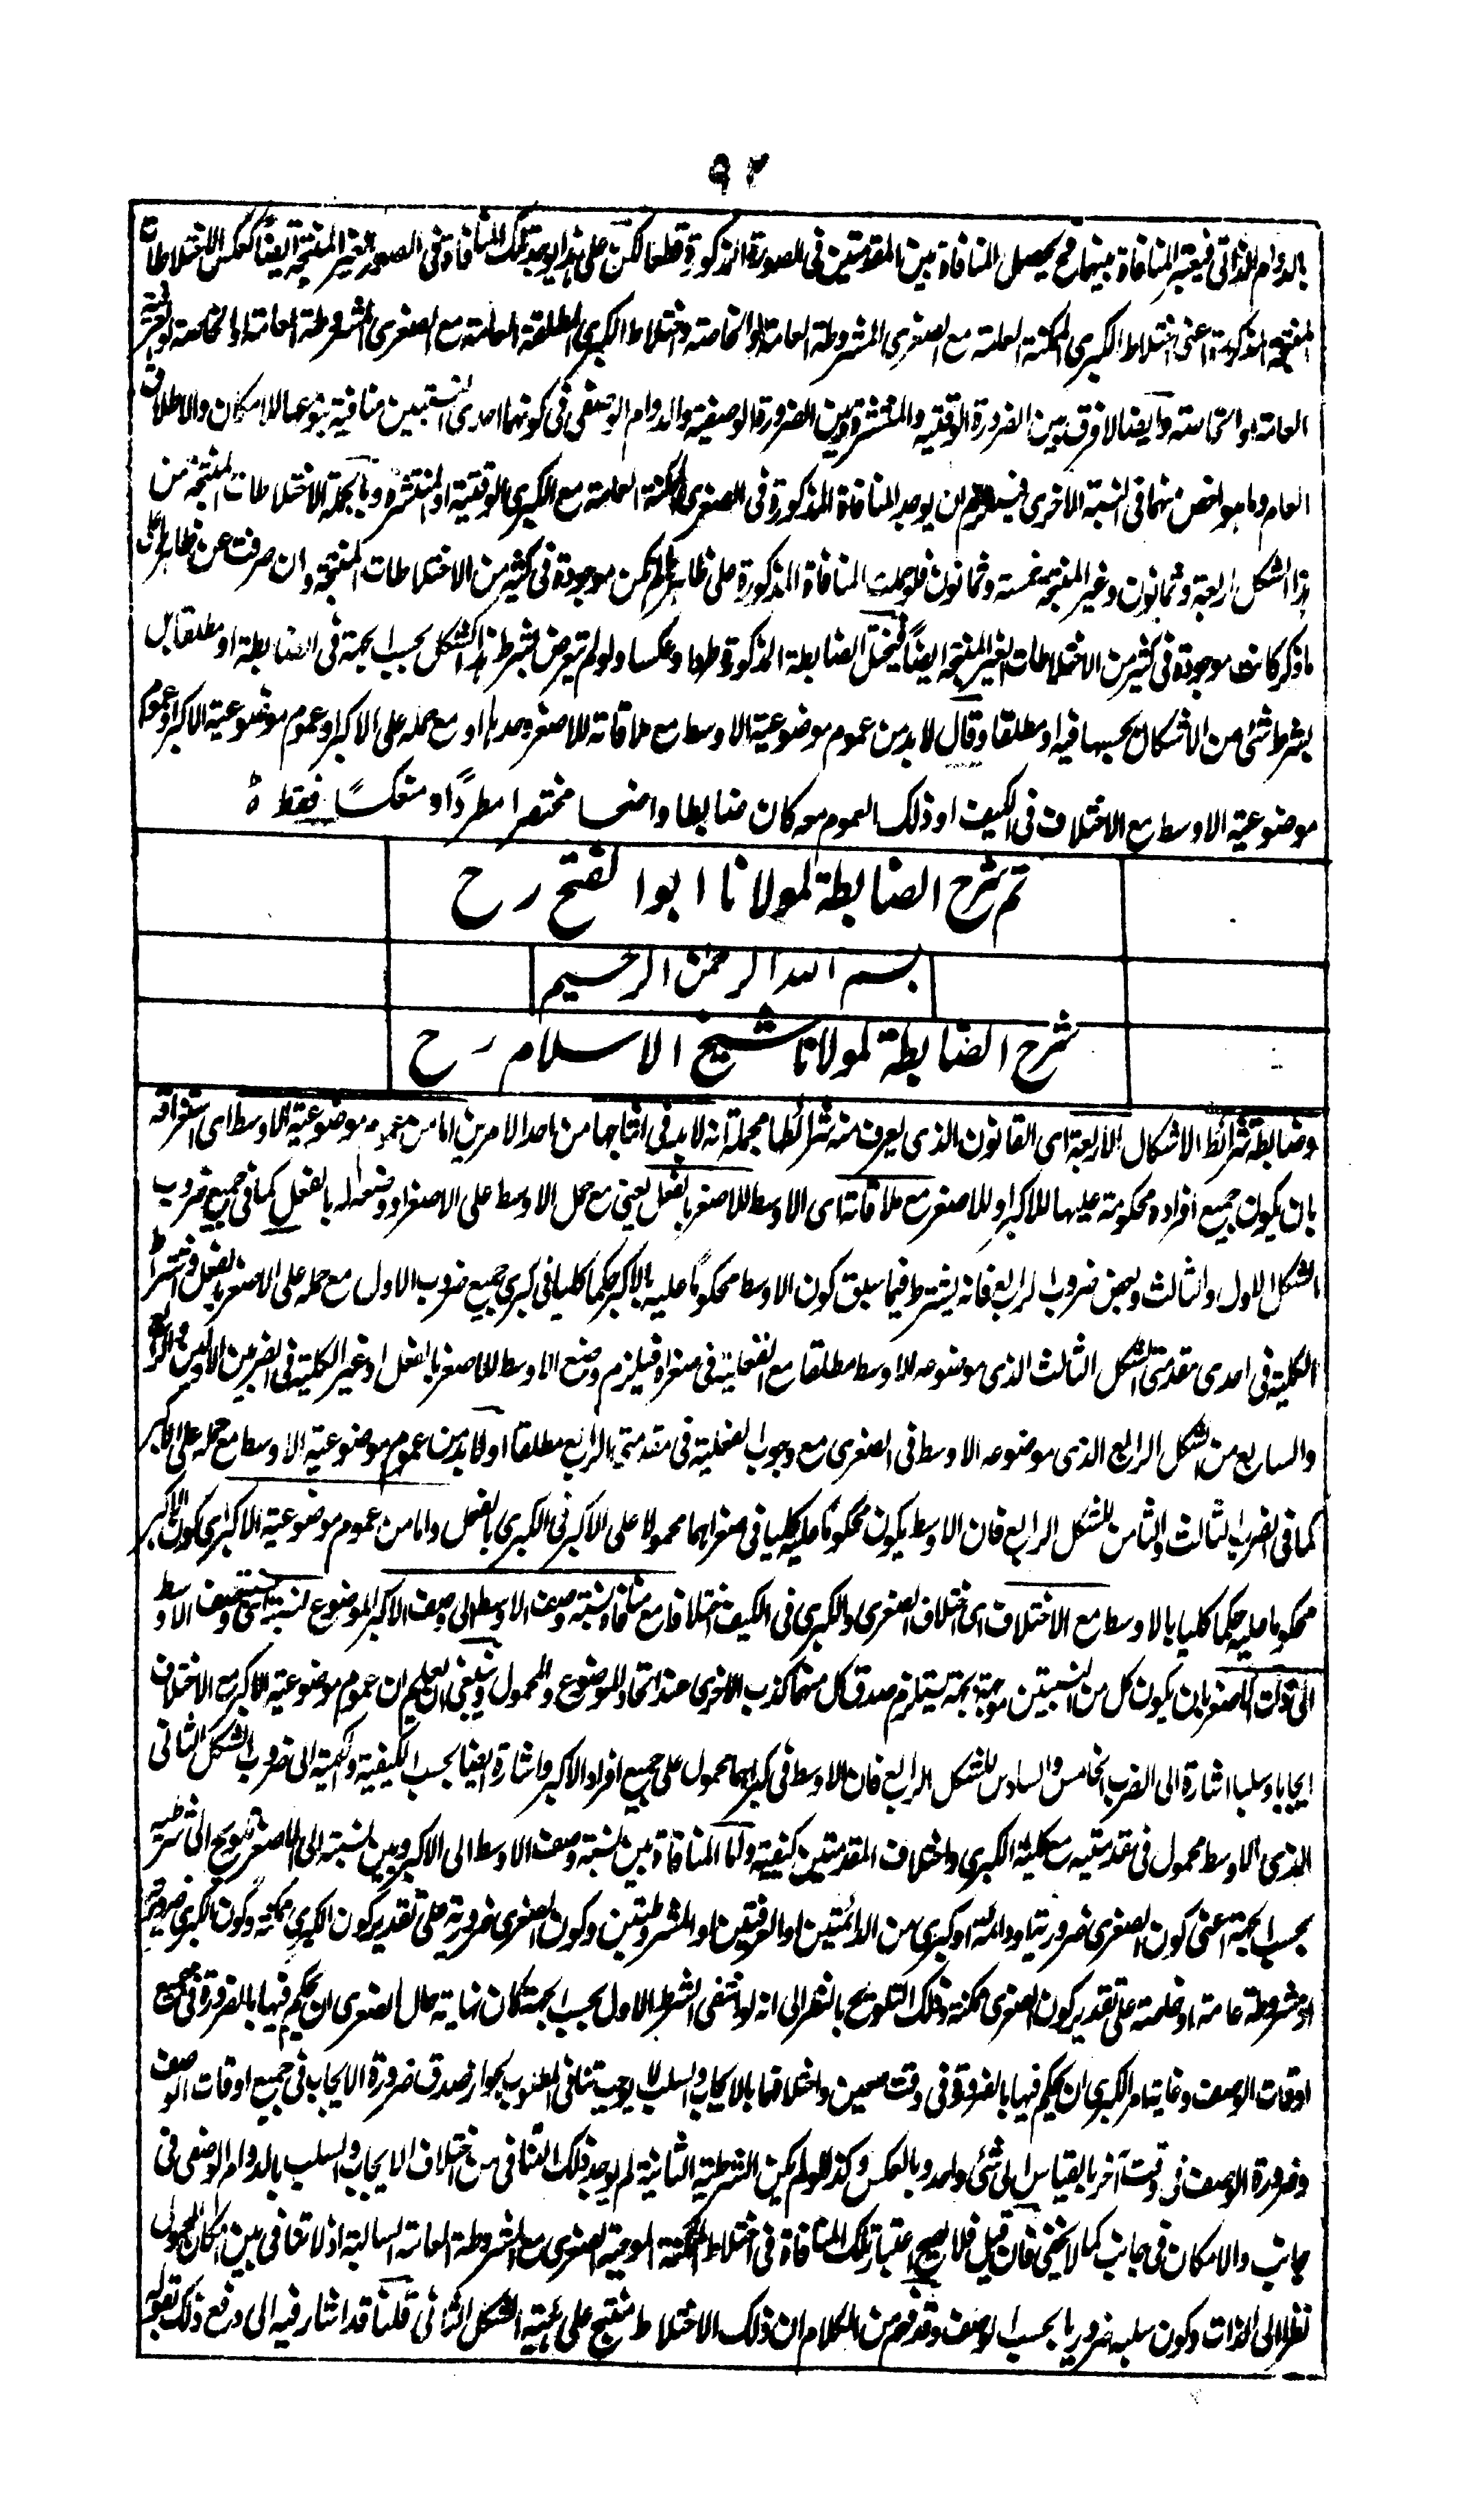 ٩٢
بالدوام الذاتي فيعتبر المنافاة بينهما فح يحصل المنافاة بين المقدمتين في الصورة المذكورة قطعا لكن على هذا يوجد تلك المنافاة في الصور الغير المنتجة ايضا كعكس الاختلاطات
المنتجة المذكورة اعنى اختلاط الكبرى الممكنة العامة مع الصغرى المشروطة العامة او الخاصة واختلاط الكبرى المطلقة العامة مع الصغرى المشروطة العامة او الخاصة او العرفية
العامة او الخاصة وايضا لا فرق بين الضرورة الوقتية والمنتشرة وبين الضرورة الوصفية والدوام الوصفى في كونها احدى النسبتين منافية بنوعها للامكان والاطلاق
العام وما هو اخص منهما في النسبة الاخرى فيلزم ان يوجد المنافاة المذكورة في الصغرى الممكنة العامة مع الكبرى الوقتية او المنتشرة وبالجملة الاختلاطات المنتجة من
هذا الشكل اربعة وثمانون وغير المنتجة خمسة وثمانون فلو حملت المنافاة المذكورة على ظاهرها لم يكن موجودة في كثير من الاختلاطات المنتجة وان صرفت عن ظاهرها الى
ما ذكر كانت موجودة في كثير من الاختلاطات الغير المنتجة ايضاً فيختل الضابطة المذكورة طردا وعكسا ولو لم يتعرض بشرط هذا الشكل بحسب الجهة في الضابطة او مطلقا بل
بشرط شئ من الاشكال بحسبها فيه او مطلقا وقال لا بد من عموم موضوعية الاوسط مع ملاقاته للاصغر وحدها او مع حمله على الاكبر وعموم موضوعية الاكبر او عموم
موضوعية الاوسط مع الاختلاف في الكيف او ذلك العموم معه كان ضابطا واضحا مختصرا مطرداً او منعكساً فقط ۀ
تم شرح الضابطة لمولانا ابوا لفتح رح
بسم الله الرحمن الرحيم
شرح الضابطة لمولانا شيخ الاسلام رح
وضابطة شرائط الاشكال الاربعة اى القانون الذى يعرف منه شرائطها مجملة انه لا بد في انتاجها من احد الامرين اما من عموم موضوعية الاوسط اى استغراقه
بان يكون جميع افراده محكومة عليها للاكبر او للاصغر مع ملاقاته اى الاوسط للاصغر بالفعل يعنى مع حمل الاوسط على الاصغر او وضعه له بالفعل كما في جميع ضروب
الشكل الاول والثالث وبعض ضروب الرابع فانه يشترط فيما سبق كون الاوسط محكوماً عليه بالاكبر حكما كليا في كبرى جميع ضروب الاول مع حمله على الاصغر بالفعل واشتراط
الكلية في احدى مقدمتى الشكل الثالث الذى موضوعه الاوسط مطلقا مع الفعلية في صغراه فيلزم وضع الاوسط للاصغر بالفعل او غير الكلية في الضربين الاولين والرابع
والسابع من الشكل الرابع الذى موضوعه الاوسط في الصغرى مع وجوب الفعلية في مقدمتى الرابع مطلقا او لا بد من عموم موضوعية الاوسط مع حمله على الاكبر
كما في الضرب الثالث والثامن للشكل الرابع فان الاوسط يكون محكوما عليه كليا في صغراهما محمولا على الاكبر في الكبرى بالفعل واما من عموم موضوعية الاكبر اى كون الاكبر
محكوما عليه حكما كليا بالاوسط مع الاختلاف اى اختلاف الصغرى والكبرى في الكيف اختلافا مع منافاة نسبة وصف الاوسط الى وصف الاكبر الموضوع لنسبته اى وصف الاوسط
الى ذات الاصغر بان يكون كل من النسبتين موجهة بجهة يستلزم صدق كل منهما كذب الاخرى عند اتحاد الموضوع والمحمول وينبغى ان يعلم ان عموم موضوعية الاكبر مع الاختلاف
ايجابا وسلبا اشارة الى الضرب الخامس والسادس للشكل الرابع فان الاوسط في كبراهما محمول على جميع افراد الاكبر واشارة ايضا بحسب الكيفية والكمية الى ضروب الشكل الثانى
الذى الاوسط محمول في مقدمتيه مع كلية الكبرى واختلاف المقدمتين كيفية واما المنافاة بين نسبة وصف الاوسط الى الاكبر وبين نسبته الى الاصغر فتلويح الى شرطيه
بحسب الجهة اعنى كون الصغرى ضرورية او دائمة او كبرى من الدائمتين او العرفيتين او المشروطتين وكون الصغرى ضرورية على تقدير كون الكبرى ممكنة وكون الكبرى ضرورية
او مشروطة عامة او خاصة على تقدير كون الصغرى ممكنة وذلك التلويح بالنظر الى انه لو انتفى الشرط الاول بحسب الجهة كان نهاية حال الصغرى ان يحكم فيها بالضرورة في جميع
اوقات الوصف وغاية امر الكبرى ان يحكم فيها بالضرورة في وقت معين واختلافهما بالايجاب والسلب لا يوجب تنافى المطلوب لجواز صدق ضرورة الايجاب في جميع اوقات الوصف
وضرورة الوصف في وقت آخر بالقياس الى شئ واحد وبالعكس وكذا لو لم يكن الشرطية الثانية لم يوجد ذلك التنافى من اختلاف الايجاب والسلب بالدوام الوصفى في
جانب والامكان في جانب كما لا يخفى فان قيل فلا يصح اعتبار تلك المنافاة في اختلاط الممكنة الموجبة الصغرى مع المشروطة العامة السالبة اذ لا تنافى بين امكان المحمول
نظرا الى الذات وكون سلبه ضروريا بحسب الوصف وقد فهم من الكلام ان ذلك الاختلاط منتج على هيئة الشكل الثانى قلنا قد اشار فيه الى دفع ذلك بقوله